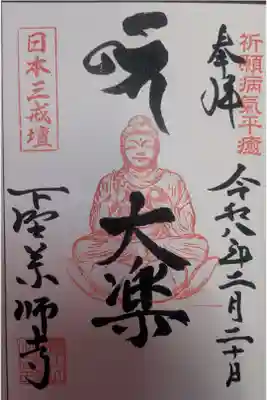 奉拝
祈願病氣平癒
令和八年二月二十日
大楽
日本三戒壇
下野薬師寺